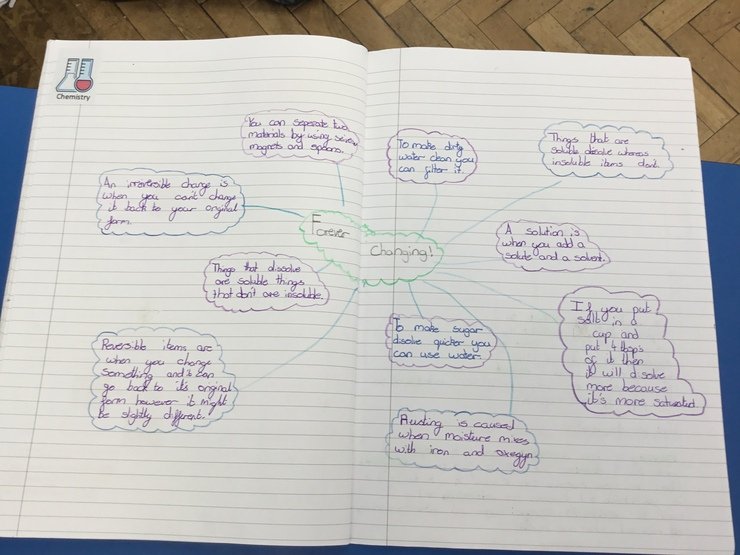 Chemistry
You can seperate two
materials by using seives
magnets and spoons.
An irreversible change is
when you can't change
it back to your original
form.
Things that dissolve
are soluble things
that don't are insoluble.
Reversible items are
when you change
something and it can
go back to it's original
form however it might
be slightly different.
Forever
Changing!
To make dirty
water clean you
can filter it.
Things that are
soluble disolve whereas
insoluble items don't.
A solution is
when you add a
solute and a solvent.
To make sugar
disolve quicker you
can use water.
If you put
salt in a
cup and
put 4
of it then
it will disolve
more because
it's more saturated.
Rusting is caused
when moisture mixes
with iron and oxegyn.